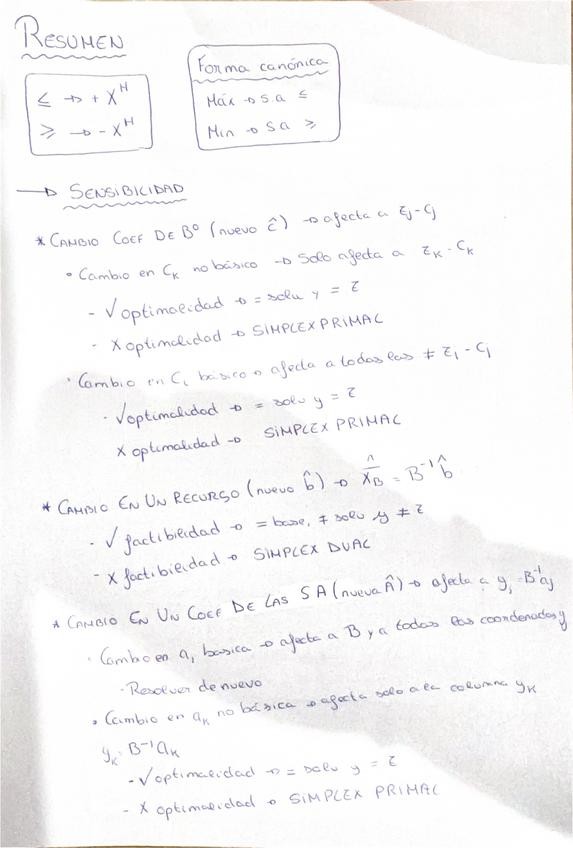 RESUMEN
≤ → + X^H
≥ → - X^H
Forma canónica
Máx → s.a ≤
Min → s a ≥
→ SENSIBILIDAD
* CAMBIO COEF DE Bº (nuevo ĉ) → afecta a z_j - c_j
• Cambio en C_K no básico → Solo afecta a z_K - C_K
- √ optimalidad → = solu y = z
- X optimalidad → SIMPLEX PRIMAL
• Cambio en C_i básico → afecta a todas las ≠ z_j - C_j
- √ optimalidad → = solu y = z
X optimalidad → SIMPLEX PRIMAL
* CAMBIO EN UN RECURSO (nuevo b̂) → X̂_B = B^-1 b̂
- √ factibilidad → = base, ≠ solu y ≠ z
- X factibilidad → SIMPLEX DUAL
* CAMBIO EN UN COEF DE LAS S A (nueva Â) → afecta a y_j = B^-1 a_j
• Cambio en a_i básica → afecta a B y a todas las coordenadas y
• Resolver de nuevo
• Cambio en a_K no básica → afecta solo a la columna y_K
y_K = B^-1 a_K
- √ optimalidad → = solu y = z
- X optimalidad → SIMPLEX PRIMAL